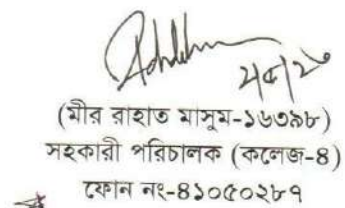 (মীর রাহাত মাসুম-১৬৩৯৮)
সহকারী পরিচালক (কলেজ-৪)
ফোন নং-৪১০৫০২৮৭